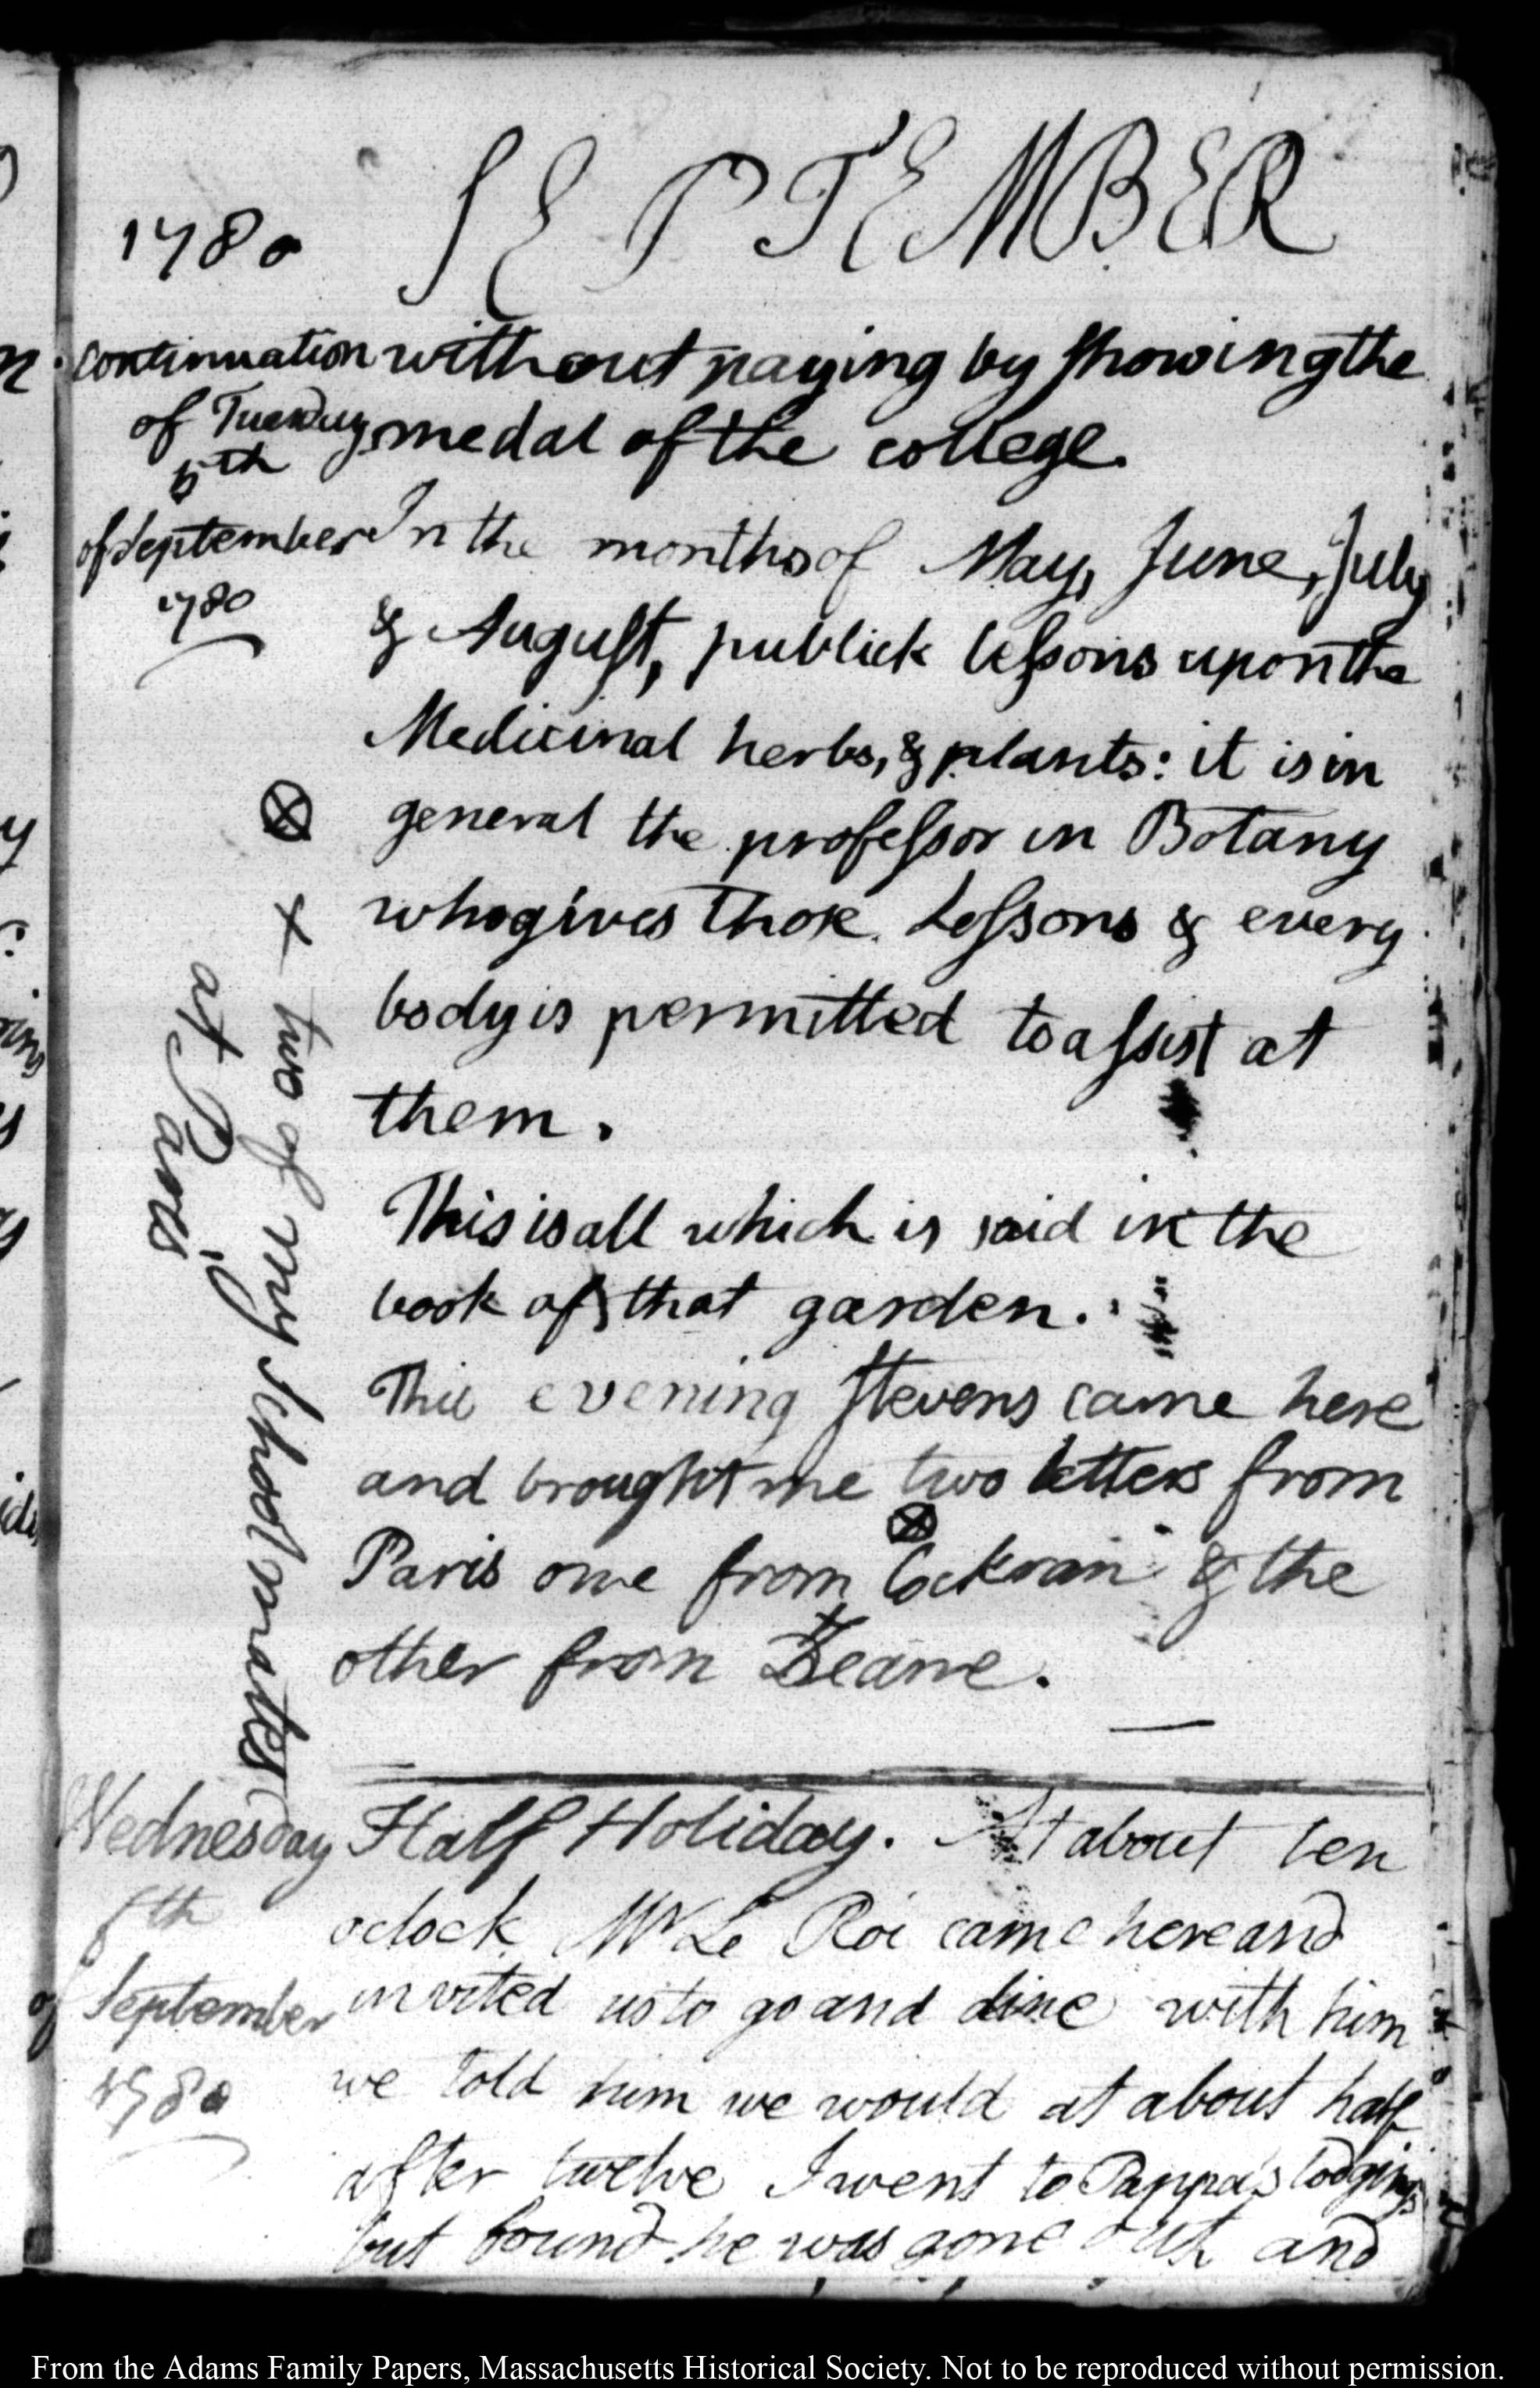 1780 SEPTEMBER
continuation
of Tuesday
5th
of September
1780
without paying by showing the
medal of the college.
In the months of May, June, July
& August, publick lessons upon the
Medicinal herbs, & plants: it is in
general the professor in Botany
who gives those Lessons & every
body is permitted to assist at
them.
This is all which is said in the
book of that garden.
This evening Stevens came here
and brought me two letters from
⊗
Paris one from Cockran & the
+
other from Deane.
⊗ + two of my school mates
at Paris
Wednesday
6th
of September
1780
Half Holiday. At about ten
oclock Mr Le Roi came here and
invited us to go and dine with him
we told him we would at about half
after twelve I went to Pappa's lodgings
but found he was gone out and
From the Adams Family Papers, Massachusetts Historical Society. Not to be reproduced without permission.